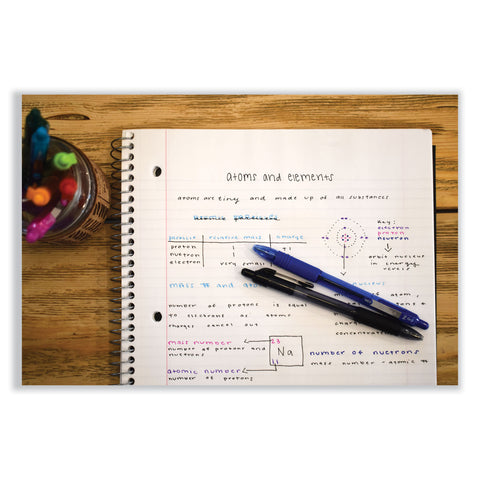 atoms and elements
atoms are tiny and made up of all substances
atomic particles
particle relative mass charge
proton 1 +1
nuetron 1
electron very small
key:
electron
proton
nuetron
orbit nucleus
in energy
levels
mass # and atom
nucleus
number of protons is equal
to electrons as atoms
charges cancel out
of atom,
concentrat
mass number
number of protons and
nuetrons
23
Na
11
atomic number
number of protons
number of nuetrons
mass number - atomic #